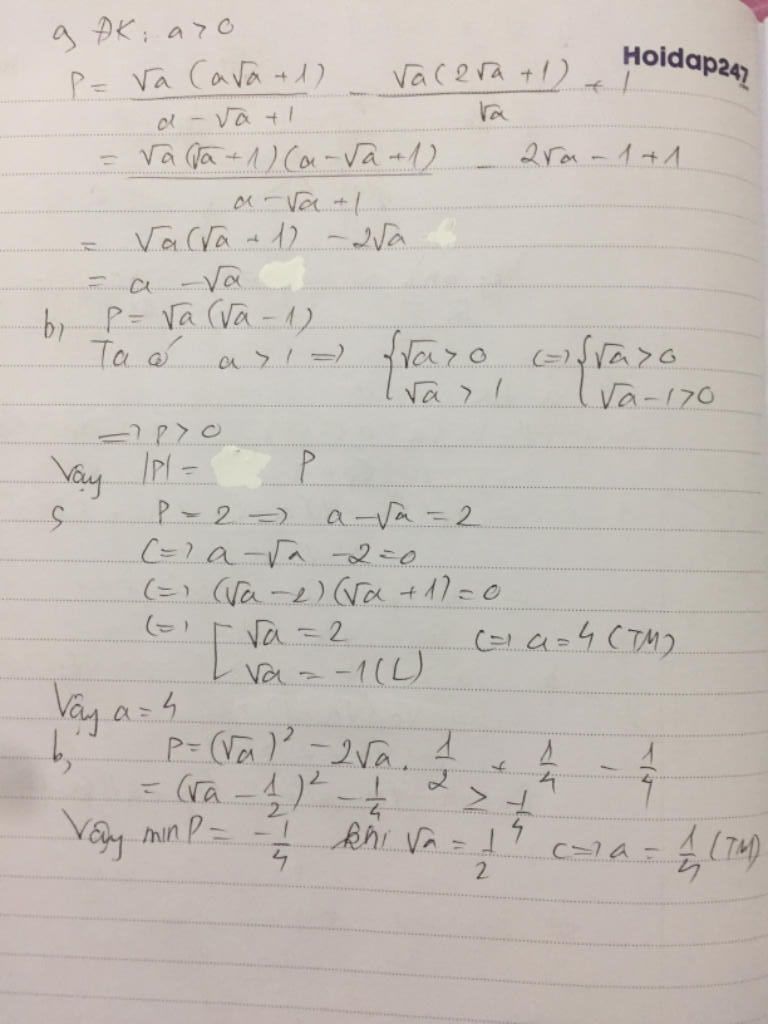 a, ĐK: a > 0
Hoidap247
P = √a(a√a + 1)/(a - √a + 1) - √a(2√a + 1)/√a + 1
= √a(√a + 1)(a - √a + 1)/(a - √a + 1) - 2√a - 1 + 1
= √a(√a + 1) - 2√a
= a - √a
b, P = √a(√a - 1)
Ta có a > 1 => { √a > 0 <=> { √a > 0
√a > 1 √a - 1 > 0
=> P > 0
Vậy |P| = P
c P = 2 => a - √a = 2
<=> a - √a - 2 = 0
<=> (√a - 2)(√a + 1) = 0
<=> [ √a = 2 <=> a = 4 (TM)
√a = -1 (L)
Vậy a = 4
b, P = (√a)² - 2√a . 1/2 + 1/4 - 1/4
= (√a - 1/2)² - 1/4 ≥ -1/4
Vậy min P = -1/4 khi √a = 1/2 <=> a = 1/4 (TM)